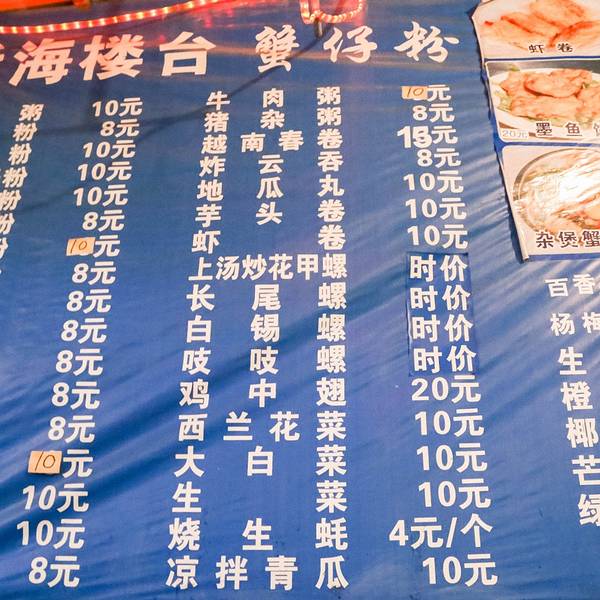 海楼台 蟹仔粉
粥 10元
粉 8元
粉 10元
粉 10元
粉 10元
粉 8元
10元
8元
8元
8元
8元
8元
8元
10元
10元
10元
8元
牛肉粥 10元
猪杂粥 8元
越南春卷 15元
炸云吞 8元
地瓜丸 10元
芋头卷 10元
虾卷 10元
上汤炒花甲螺 时价
长尾螺 时价
白锡螺 时价
吱吱螺 时价
鸡中翅 20元
西兰花菜 10元
大白菜 10元
生菜 10元
烧生蚝 4元/个
凉拌青瓜 10元
虾卷
20元 墨鱼
杂煲蟹
百香
杨梅
生
橙
椰
芒
绿